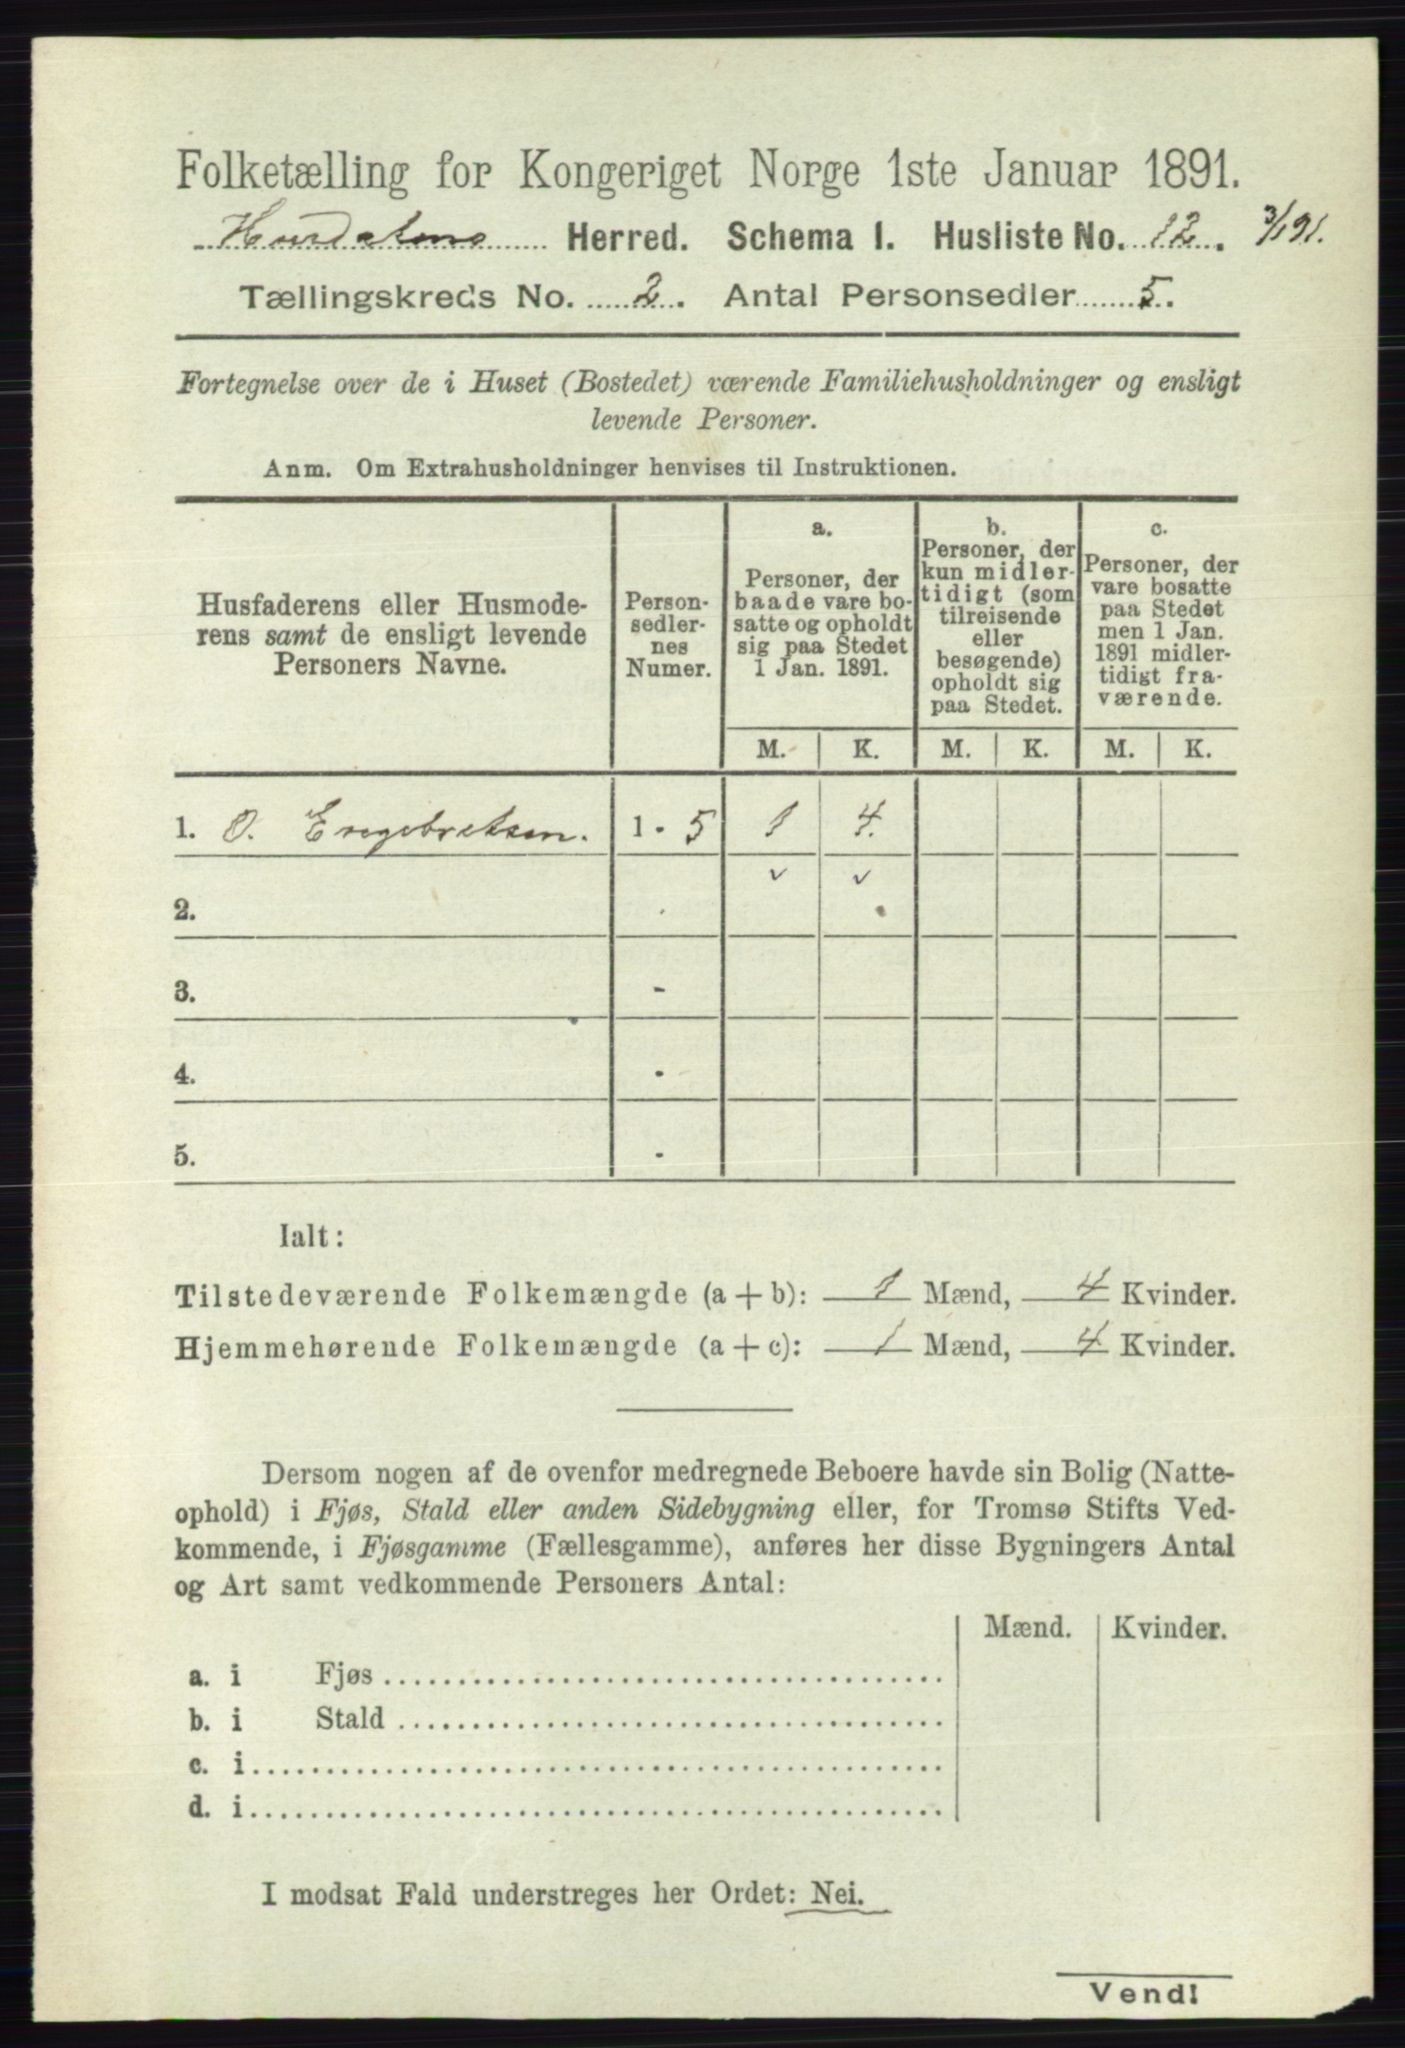 Folketælling for Kongeriget Norge 1ste Januar 1891.
Hurdalens Herred. Schema 1. Husliste No. 12. 3/1 91.
Tællingskreds No. 2. Antal Personsedler 5.
Fortegnelse over de i Huset (Bostedet) værende Familiehusholdninger og ensligt
levende Personer.
Anm. Om Extrahusholdninger henvises til Instruktionen.
Husfaderens eller Husmode-
rens samt de ensligt levende
Personers Navne.
Person-
sedler-
nes
Numer.
a.
Personer, der
baade vare bo-
satte og opholdt
sig paa Stedet
1 Jan. 1891.
b.
Personer, der
kun midler-
tidigt (som
tilreisende
eller
besøgende)
opholdt sig
paa Stedet.
c.
Personer, der
vare bosatte
paa Stedet
men 1 Jan.
1891 midler-
tidigt fra-
værende.
M. K. M. K. M. K.
1. O. Engebretsen. 1 - 5 1 4.
2.
3. -
4. -
5. -
Ialt:
Tilstedeværende Folkemængde (a + b): 1 Mænd, 4 Kvinder.
Hjemmehørende Folkemængde (a + c): 1 Mænd, 4 Kvinder.
Dersom nogen af de ovenfor medregnede Beboere havde sin Bolig (Natte-
ophold) i Fjøs, Stald eller anden Sidebygning eller, for Tromsø Stifts Ved-
kommende, i Fjøsgamme (Fællesgamme), anføres her disse Bygningers Antal
og Art samt vedkommende Personers Antal:
Mænd. Kvinder.
a. i Fjøs
b. i Stald
c. i
d. i
I modsat Fald understreges her Ordet: Nei.
Vend!